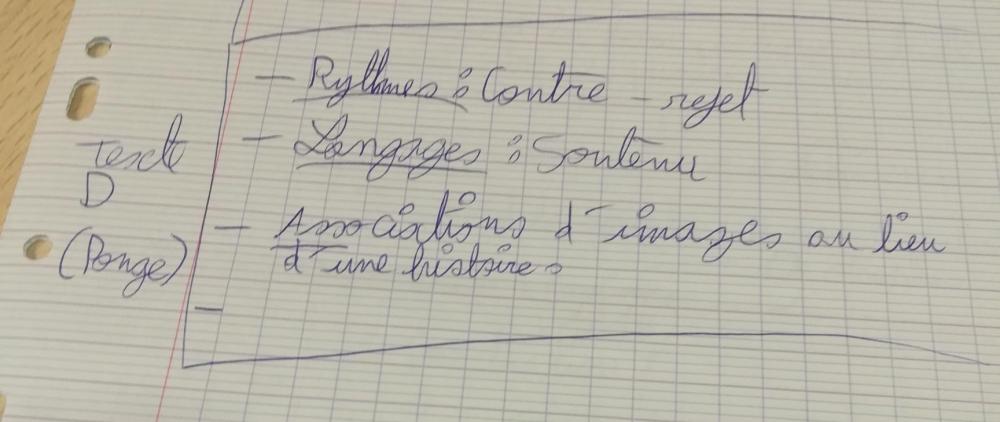 - Rythmes : Contre-rejet
Texte
D
(Ponge)
- Langages : Soutenu
- Associations d'images au lieu
d'une histoire.
-